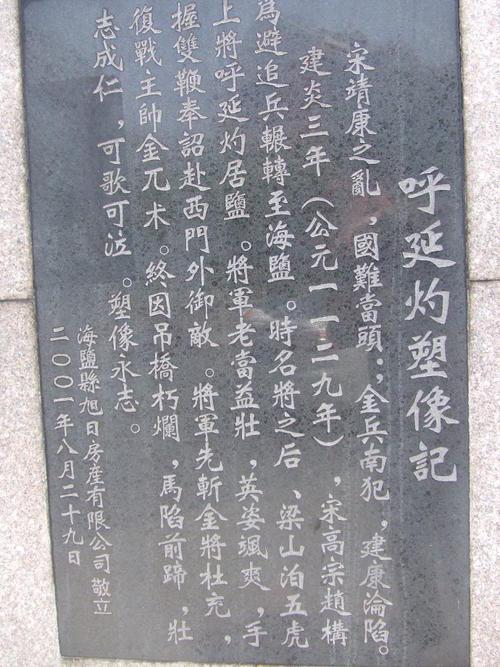 呼延灼塑像記
宋靖康之亂，國難當頭：，金兵南犯，建康淪陷。
建炎三年（公元一一二九年），宋高宗趙構
為避追兵輾轉至海鹽。時名將之后、梁山泊五虎
上將呼延灼居鹽。將軍老當益壯，英姿颯爽，手
握雙鞭奉詔赴西門外御敵。將軍先斬金將杜充，
復戰主帥金兀术。終因吊橋朽爛，馬陷前蹄，壯
志成仁，可歌可泣。塑像永志。
海鹽縣旭日房產有限公司敬立
二〇〇一年八月二十九日